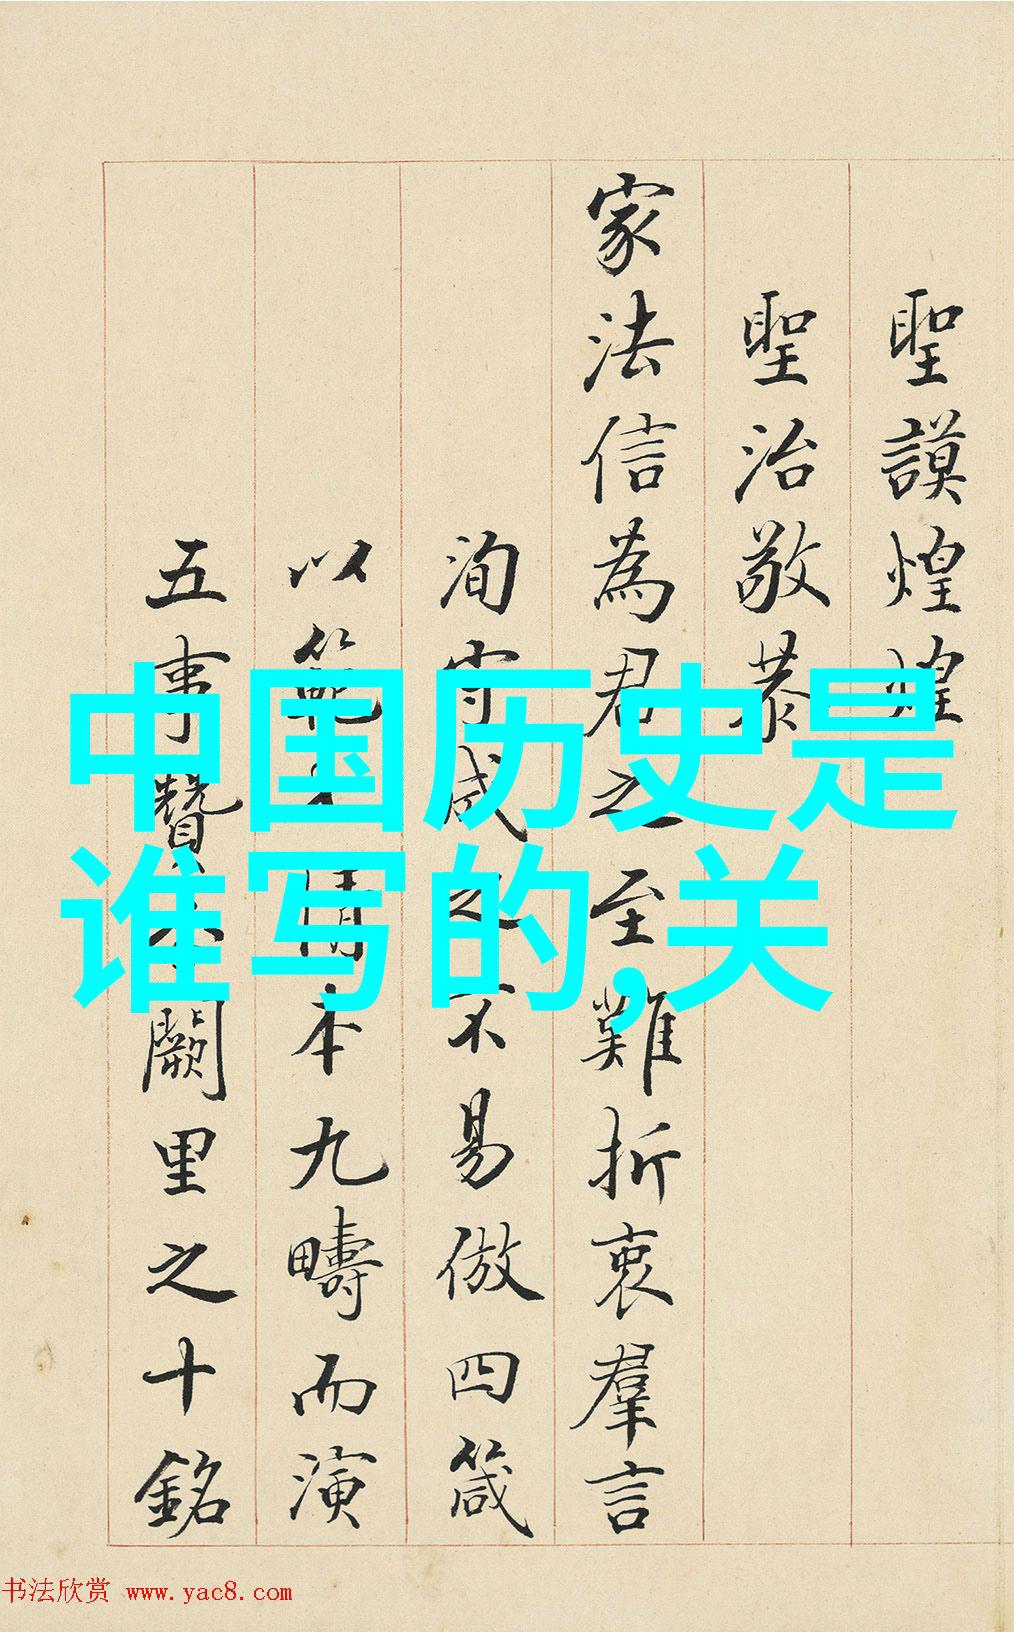 聖謨煌煌
聖治敬恭
家法信為君之至難折衷羣言
洵守成之不易倣四箴
以範情本九疇而演
五事贊闕里之十銘
中国历史是
谁写的,关
书法欣赏 www.yac8.com